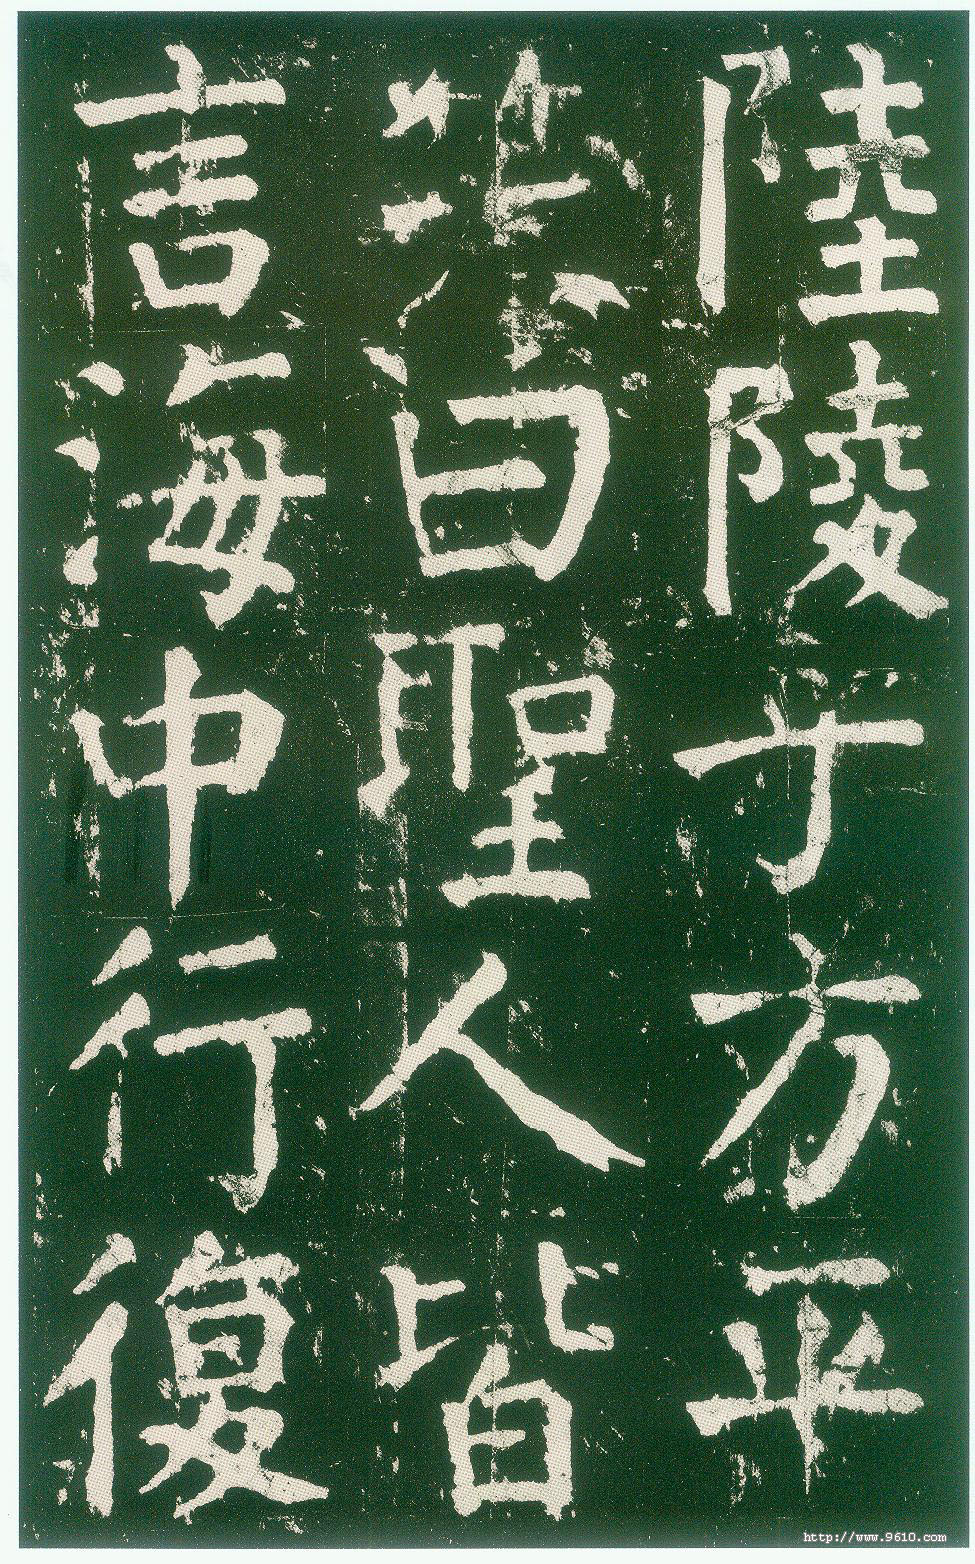 陸陵乎方平
笑曰聖人皆
言海中行復
http://www.9610.com